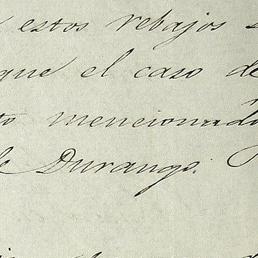 estos rebajos
que el caso de
mencionado
Durango.